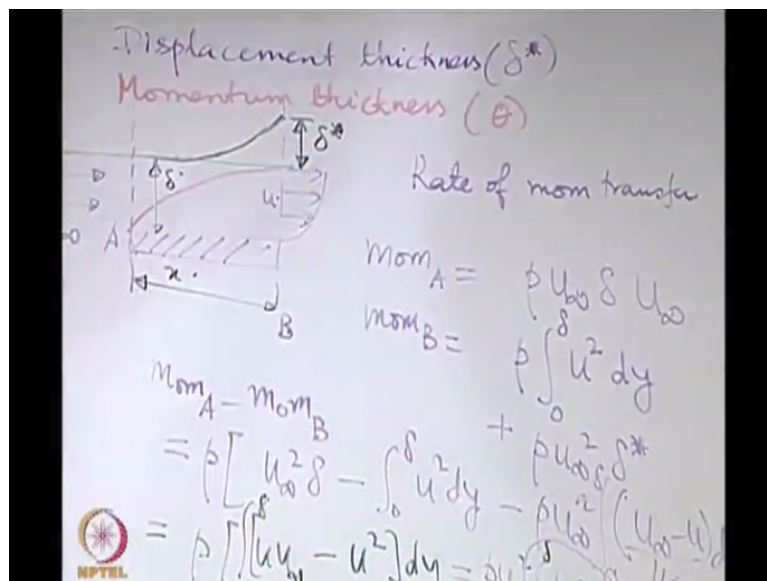 Displacement thickness (δ*)
Momentum thickness (θ)
δ*
δ
u
A
x
B
Rate of mom transfer
Mom_A = ρ u_∞ δ u_∞
Mom_B = ρ ∫_0^δ u² dy
+ ρ u_∞² δ*
Mom_A - Mom_B
= ρ [ u_∞² δ - ∫_0^δ u² dy - ρ u_∞² (u_∞ - u) d
= ρ [ ∫ [u u_∞ - u²] dy -
NPTEL